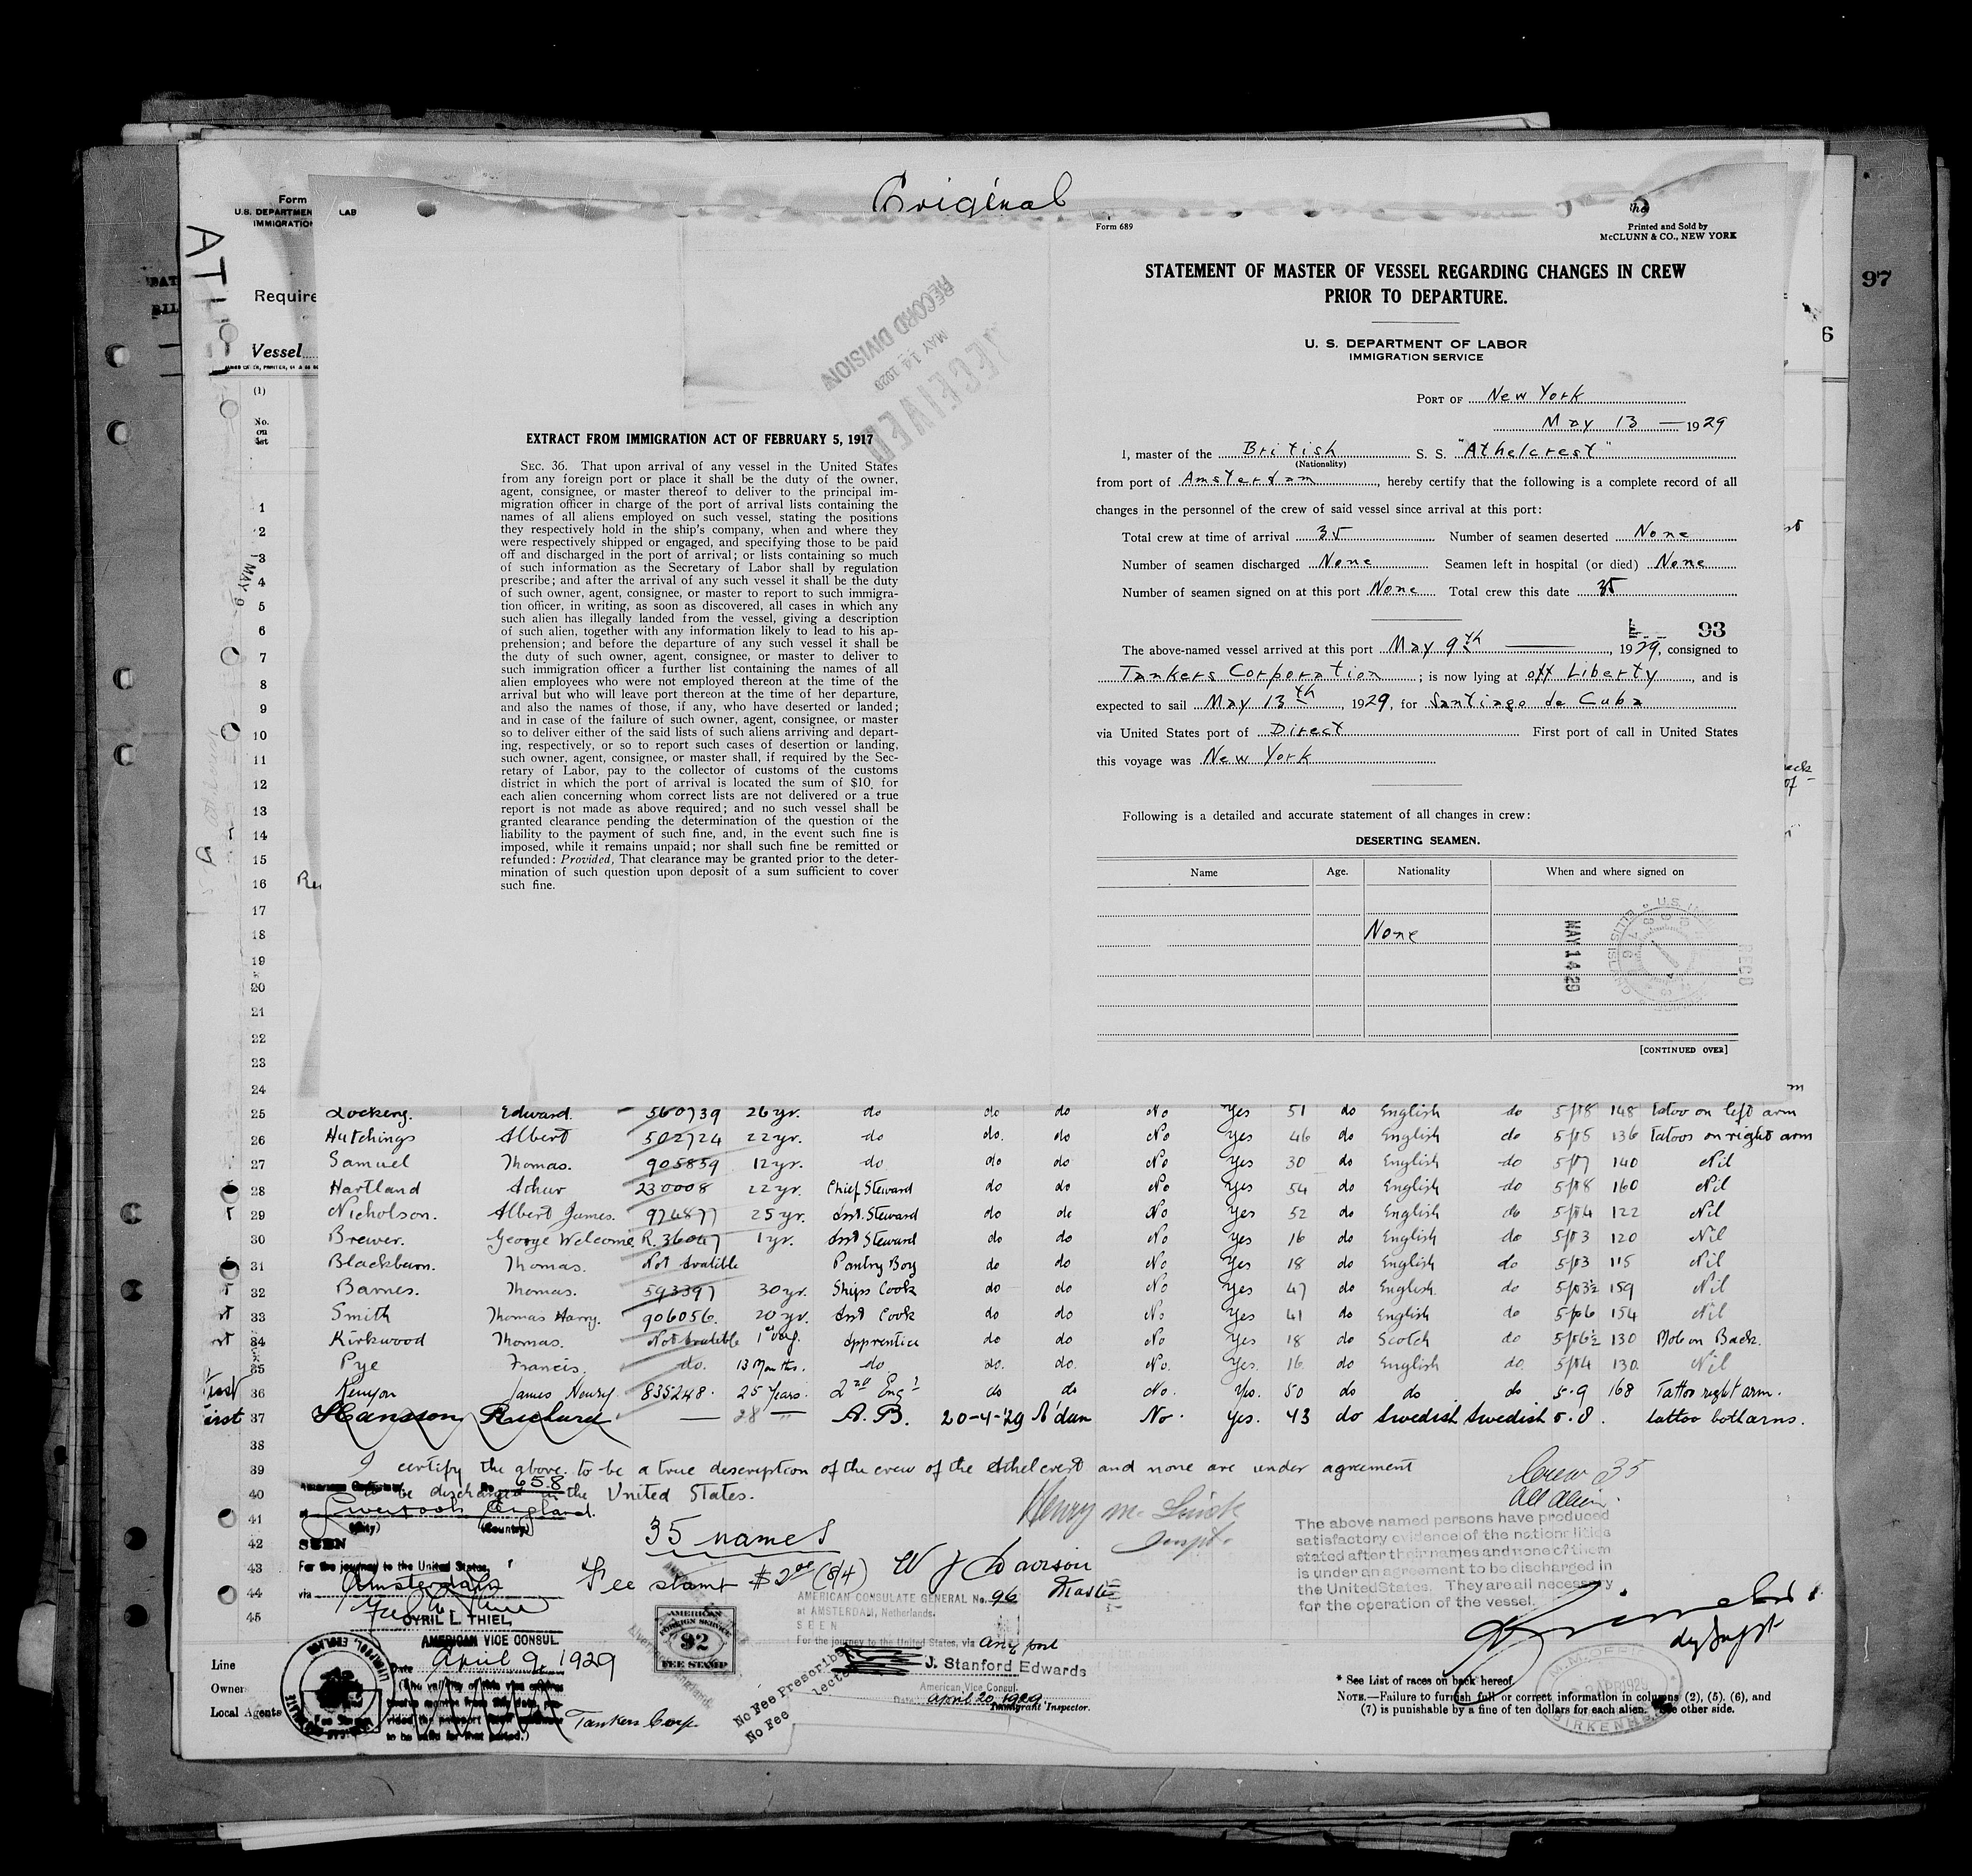 Original
Form
U. S. DEPARTMEN LAB
IMMIGRATION
Require
Vessel
(1)
No.
on
list
97
6
RECEIVED
MAY 14 1929
RECORD DIVISION
EXTRACT FROM IMMIGRATION ACT OF FEBRUARY 5, 1917
SEC. 36. That upon arrival of any vessel in the United States
from any foreign port or place it shall be the duty of the owner,
agent, consignee, or master thereof to deliver to the principal im-
migration officer in charge of the port of arrival lists containing the
names of all aliens employed on such vessel, stating the positions
they respectively hold in the ship's company, when and where they
were respectively shipped or engaged, and specifying those to be paid
off and discharged in the port of arrival; or lists containing so much
of such information as the Secretary of Labor shall by regulation
prescribe; and after the arrival of any such vessel it shall be the duty
of such owner, agent, consignee, or master to report to such immigra-
tion officer, in writing, as soon as discovered, all cases in which any
such alien has illegally landed from the vessel, giving a description
of such alien, together with any information likely to lead to his ap-
prehension; and before the departure of any such vessel it shall be
the duty of such owner, agent, consignee, or master to deliver to
such immigration officer a further list containing the names of all
alien employees who were not employed thereon at the time of the
arrival but who will leave port thereon at the time of her departure,
and also the names of those, if any, who have deserted or landed;
and in case of the failure of such owner, agent, consignee, or master
so to deliver either of the said lists of such aliens arriving and depart-
ing, respectively, or so to report such cases of desertion or landing,
such owner, agent, consignee, or master shall, if required by the Sec-
retary of Labor, pay to the collector of customs of the customs
district in which the port of arrival is located the sum of $10 for
each alien concerning whom correct lists are not delivered or a true
report is not made as above required; and no such vessel shall be
granted clearance pending the determination of the question of the
liability to the payment of such fine, and, in the event such fine is
imposed, while it remains unpaid; nor shall such fine be remitted or
refunded: Provided, That clearance may be granted prior to the deter-
mination of such question upon deposit of a sum sufficient to cover
such fine.
Form 689
Printed and Sold by
McCLUNN & CO., NEW YORK
STATEMENT OF MASTER OF VESSEL REGARDING CHANGES IN CREW
PRIOR TO DEPARTURE.
U. S. DEPARTMENT OF LABOR
IMMIGRATION SERVICE
PORT OF New York
May 13 — 1929
I, master of the British S. S. "Athelcrest"
(Nationality)
from port of Amsterdam, hereby certify that the following is a complete record of all
changes in the personnel of the crew of said vessel since arrival at this port:
Total crew at time of arrival 35 Number of seamen deserted None
Number of seamen discharged None Seamen left in hospital (or died) None
Number of seamen signed on at this port None Total crew this date 35
93
The above-named vessel arrived at this port May 9th, 1929, consigned to
Tankers Corporation; is now lying at off Liberty, and is
expected to sail May 13th, 1929, for Santiago de Cuba
via United States port of Direct First port of call in United States
this voyage was New York
Following is a detailed and accurate statement of all changes in crew:
DESERTING SEAMEN.
Name Age. Nationality When and where signed on
None
MAY 14 29
[CONTINUED OVER]
1
2
3
4
5
6
7
8
9
10
11
12
13
14
15
16
17
18
19
20
21
22
23
24
25 Lockery. Edward. 560739 26 yr. do do do No Yes 51 do English do 5/08 148 Tatoo on left arm
26 Hutchings Albert 502724 22 yr. do do. do No Yes 46 do English do 5/05 136 Tatoos on right arm
27 Samuel Thomas. 905859 12 yr. do do do No Yes 30 do English do 5/07 140 Nil
28 Hartland Arthur 230008 22 yr. Chief Steward do do No Yes 54 do English do 5/08 160 Nil
29 Nicholson. Albert James. 974877 25 yr. Asst. Steward do do No Yes 52 do English do 5/04 122 Nil
30 Brewer. George Welcome R. 36047 1 yr. Asst Steward do do No Yes 16 do English do 5/03 120 Nil
31 Blackburn. Thomas. Not Avalible Pantry Boy do do No Yes 18 do English do 5/03 115 Nil
32 Barnes. Thomas. 593397 30 yr. Ships Cook do do No Yes 47 do English. do 5/03½ 159 Nil
33 Smith Thomas Harry. 906056. 20 yr. Asst Cook do do No Yes 41 do English do 5/06 154 Nil
34 Kirkwood Thomas. Not Avalible 1st Voy. Apprentice do do No Yes 18 do Scotch do 5/06½ 130 Mole on Back.
35 Pye Francis. do. 13 Months. do do. do. No. Yes. 16. do English do. 5/04 130. Nil
36 Kenyon James Henry. 835248. 25 Years. 2nd Engr do do No. Yes. 50 do do do 5-9 168 Tattoo right arm.
37 Hansson Richard — 28 " A. B. 20-4-'29 A'dam No. Yes. 43 do Swedish Swedish 5.8. tattoo both arms.
38
39 I certify the above. to be a true description of the crew of the Athelcrest and none are under agreement
40 to be discharged in the United States.
41
42
43
44
45
No. 658
Liverpool, England.
(City) (Country)
SEEN
For the journey to the United States,
via Amsterdam
CYRIL L. THIEL
AMERICAN VICE CONSUL
Date April 9, 1929
35 names
Fee stamt $2.00 (8/4)
W J Davison
Master
Crew 35
All Alien.
The above named persons have produced
satisfactory evidence of the nationalities
stated after their names and none of them
is under an agreement to be discharged in
the United States. They are all necessary
for the operation of the vessel.
AMERICAN CONSULATE GENERAL No. 96
at AMSTERDAM, Netherlands.
SEEN
For the journey to the United States, via Any port
J. Stanford Edwards
American Vice Consul.
Date: April 20, 1929
Immigrant Inspector.
AMERICAN
FOREIGN SERVICE
$2
FEE STAMP
No Fee Prescribed
No Fee
Line
Owners
Local Agents Tankers Corp.
* See List of races on back hereof.
NOTE.—Failure to furnish full or correct information in columns (2), (5), (6), and
(7) is punishable by a fine of ten dollars for each alien. See other side.